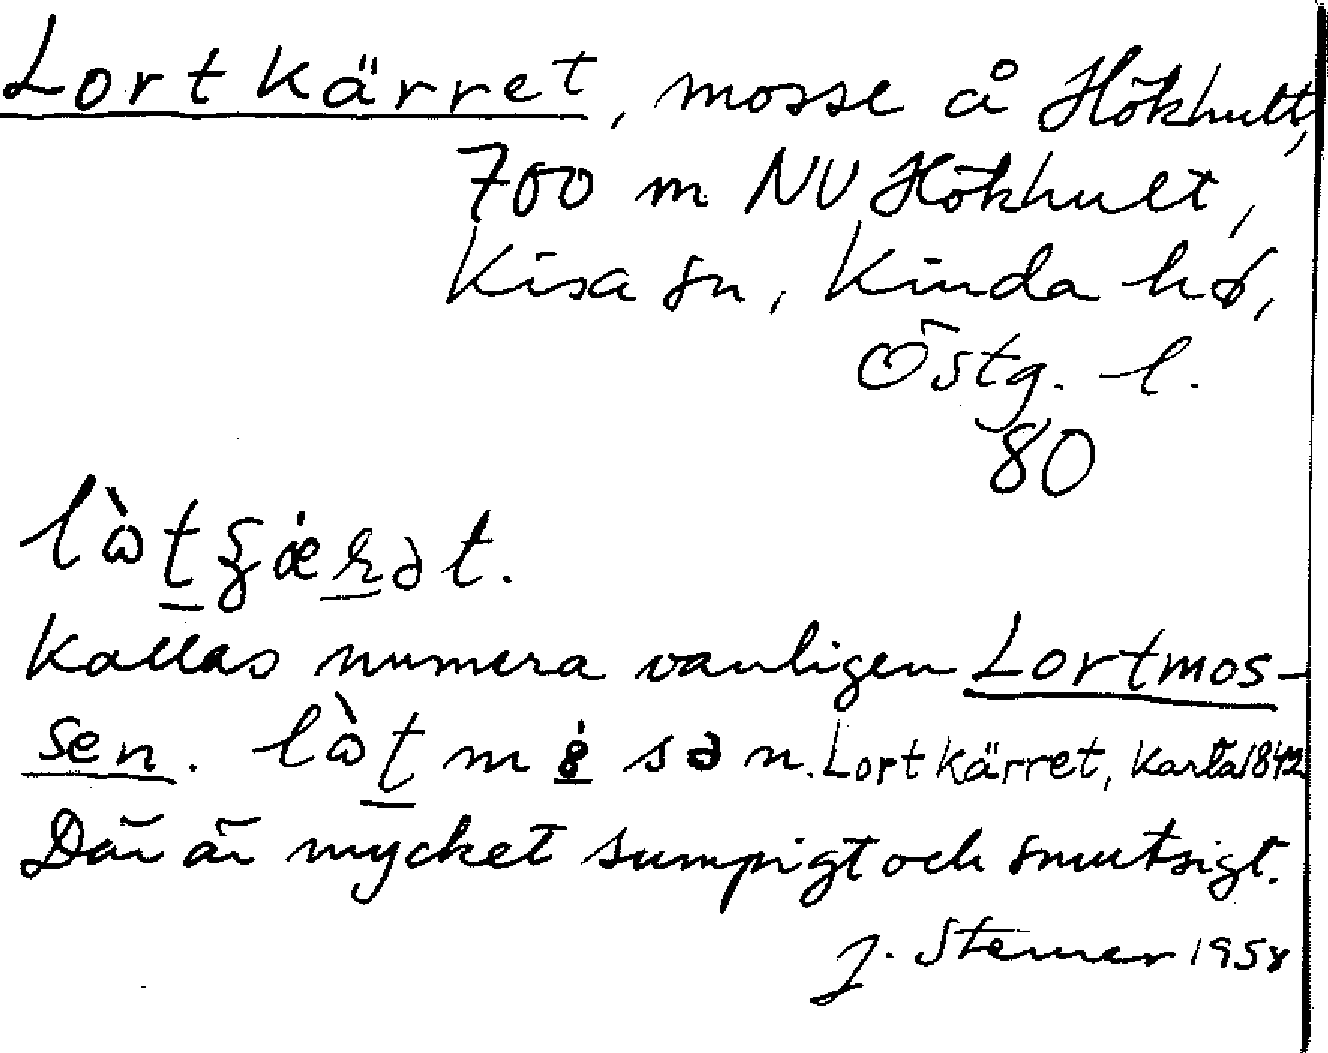 Lortkärret, mosse å Hökhult,
700 m NV Hökhult,
Kisa sn, Kinda hd,
Östg. l.
80
Kallas numera vanligen Lortmos-
sen. Lortkärret, Karta 1842
Där är mycket sumpigt och smutsigt.
J. Sterner 1958